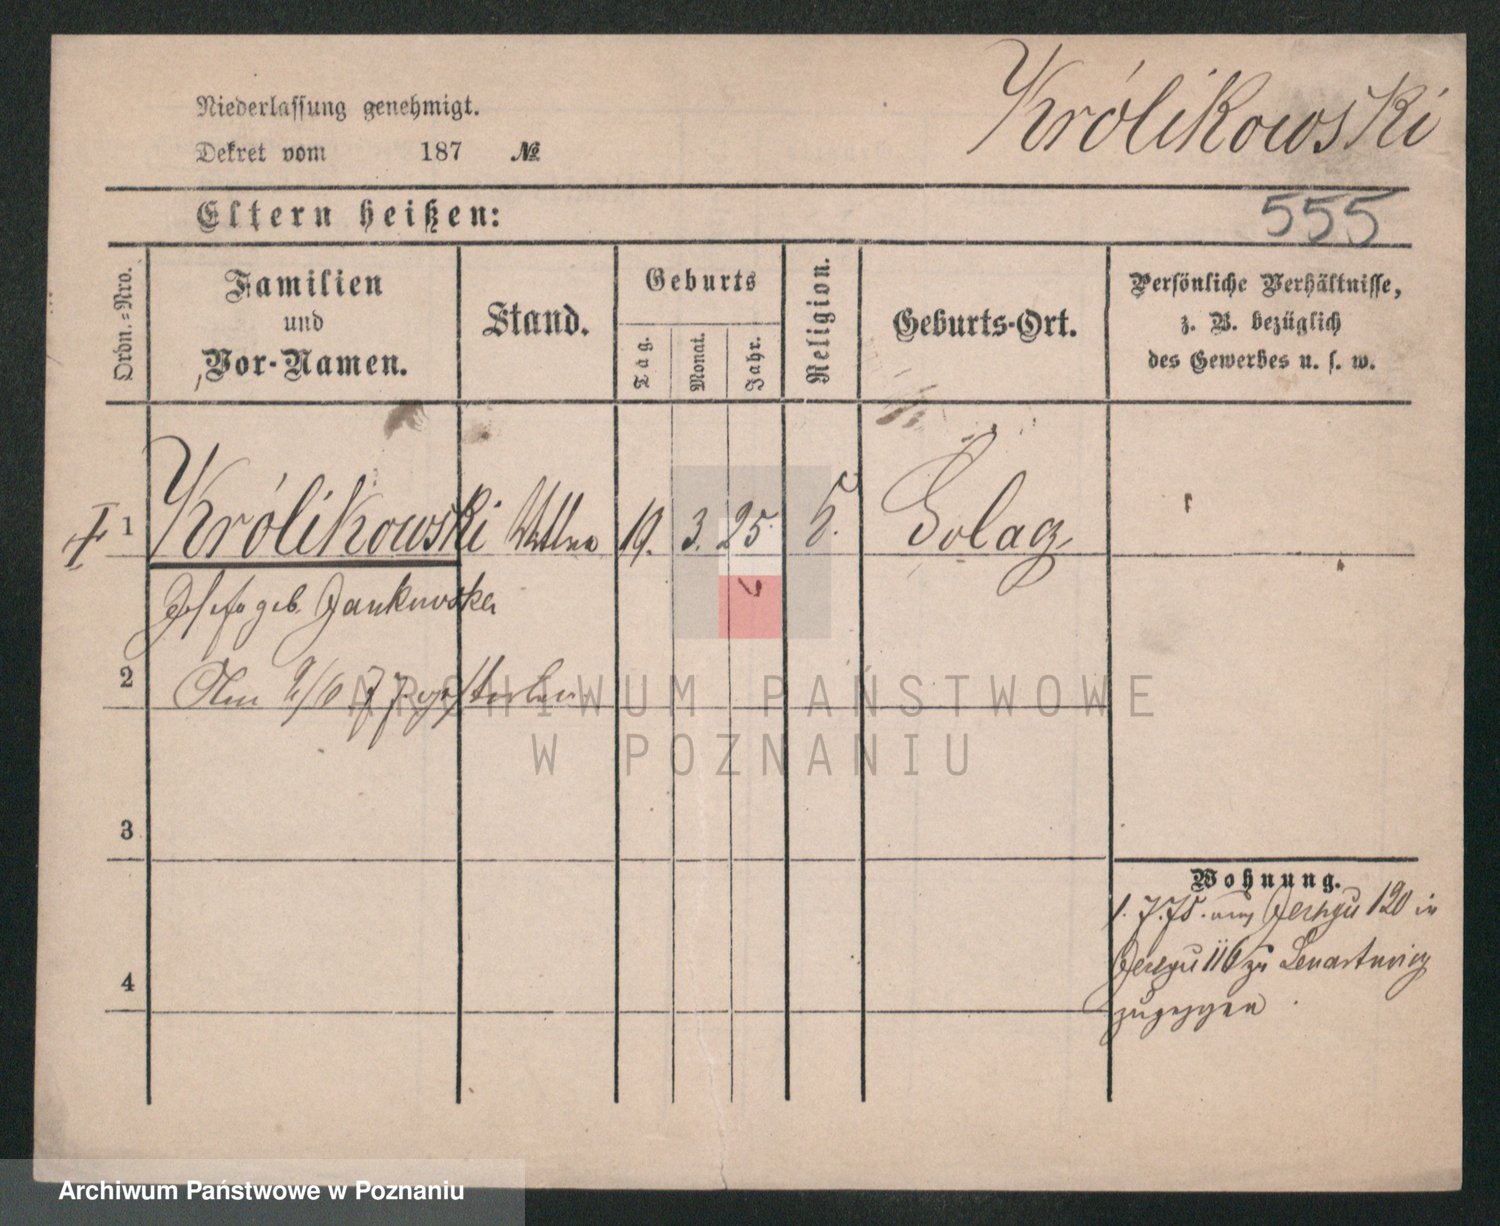 Królikowski
Niederlassung genehmigt.
Dekret vom 187 №
Eltern heißen:
555
Ordn.-Nro.
Familien
und
Vor-Namen.
Stand.
Geburts
Tag.
Monat.
Jahr.
Religion.
Geburts-Ort.
Persönliche Verhältnisse,
z. B. bezüglich
des Gewerbes u. s. w.
1 Królikowski 19. 3. 25.
geb. Jankowska
2
gestorben
ARCHIWUM PAŃSTWOWE
W POZNANIU
3
Wohnung.
1. 7.75. 120 in
4
116 zu Lenartowicz
zugezogen
Archiwum Państwowe w Poznaniu